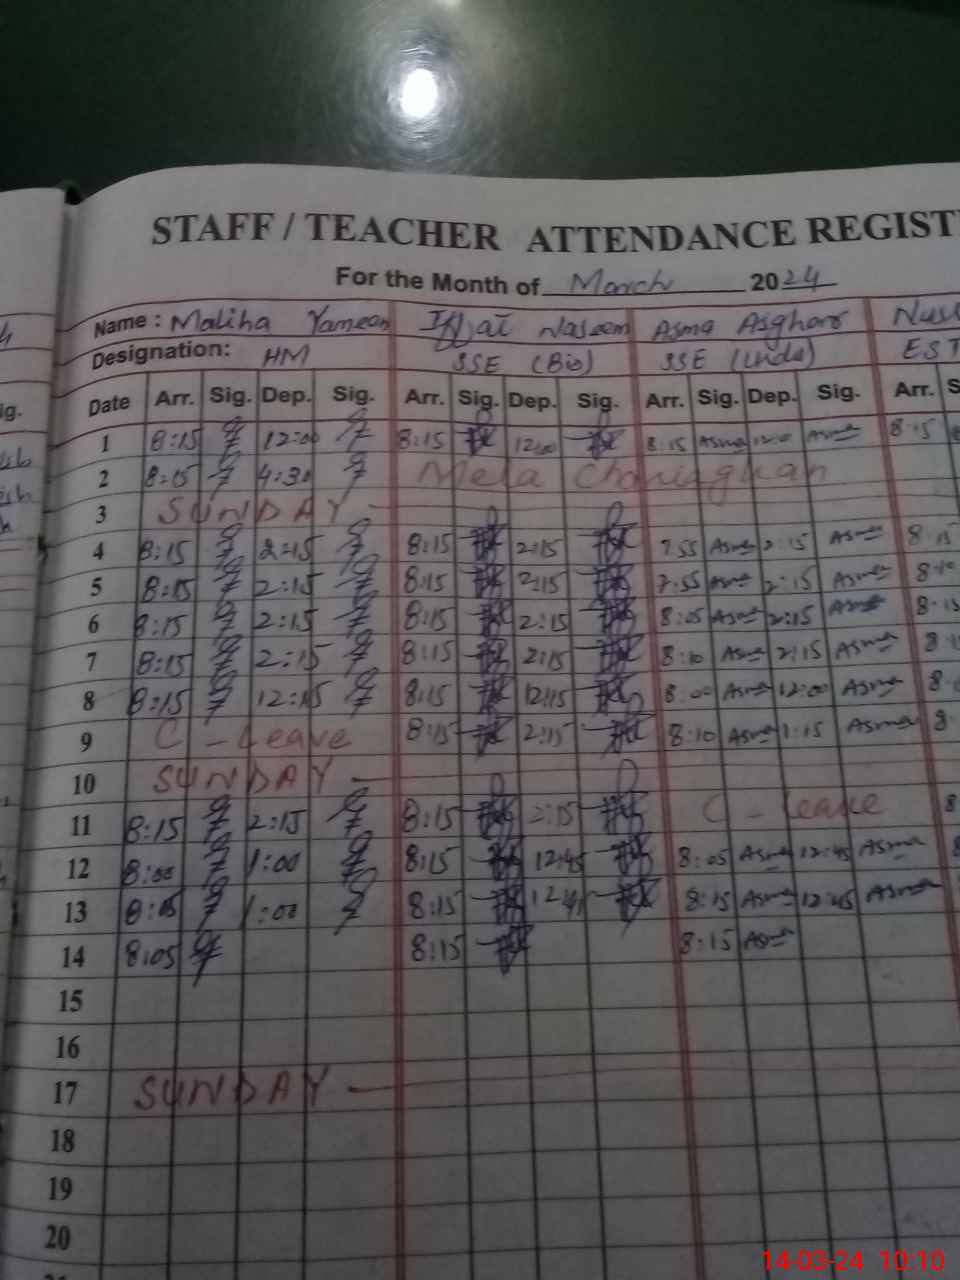 STAFF / TEACHER ATTENDANCE REGIST
For the Month of March 2024
Name : Maliha Yameen Iffat Naseem Asma Asghar
Designation: HM SSE (Bio) SSE (Urdu) EST
Date Arr. Sig. Dep. Sig. Arr. Sig. Dep. Sig. Arr. Sig. Dep. Sig. Arr. S
1 8:15 12:00 8:15 12:00 8:15 Asma Asma 8:15
2 8:15 4:30 Mela
3 SUNDAY
4 8:15 2:15 8:15 2:15 7:55 Asma 2:15 Asma 8:15
5 8:15 2:15 8:15 2:15 7:55 Asma 2:15 Asma 8:10
6 8:15 2:15 8:15 2:15 8:05 Asma 2:15 Asma 8:15
7 8:15 2:15 8:15 2:15 8:10 Asma 2:15 Asma
8 8:15 12:15 8:15 12:15 8:00 Asma 12:00 Asma
9 C - Leave 8:15 2:15 8:10 Asma 1:15 Asma
10 SUNDAY
11 8:15 2:15 8:15 2:15 C - Leave
12 8:00 1:00 8:15 12:45 8:05 Asma 12:45 Asma
13 8:05 1:00 8:15 8:15 Asma 12:45 Asma
14 8:05 8:15 8:15 Asma
15
16
17 SUNDAY
18
19
20
14-03-24 10:10